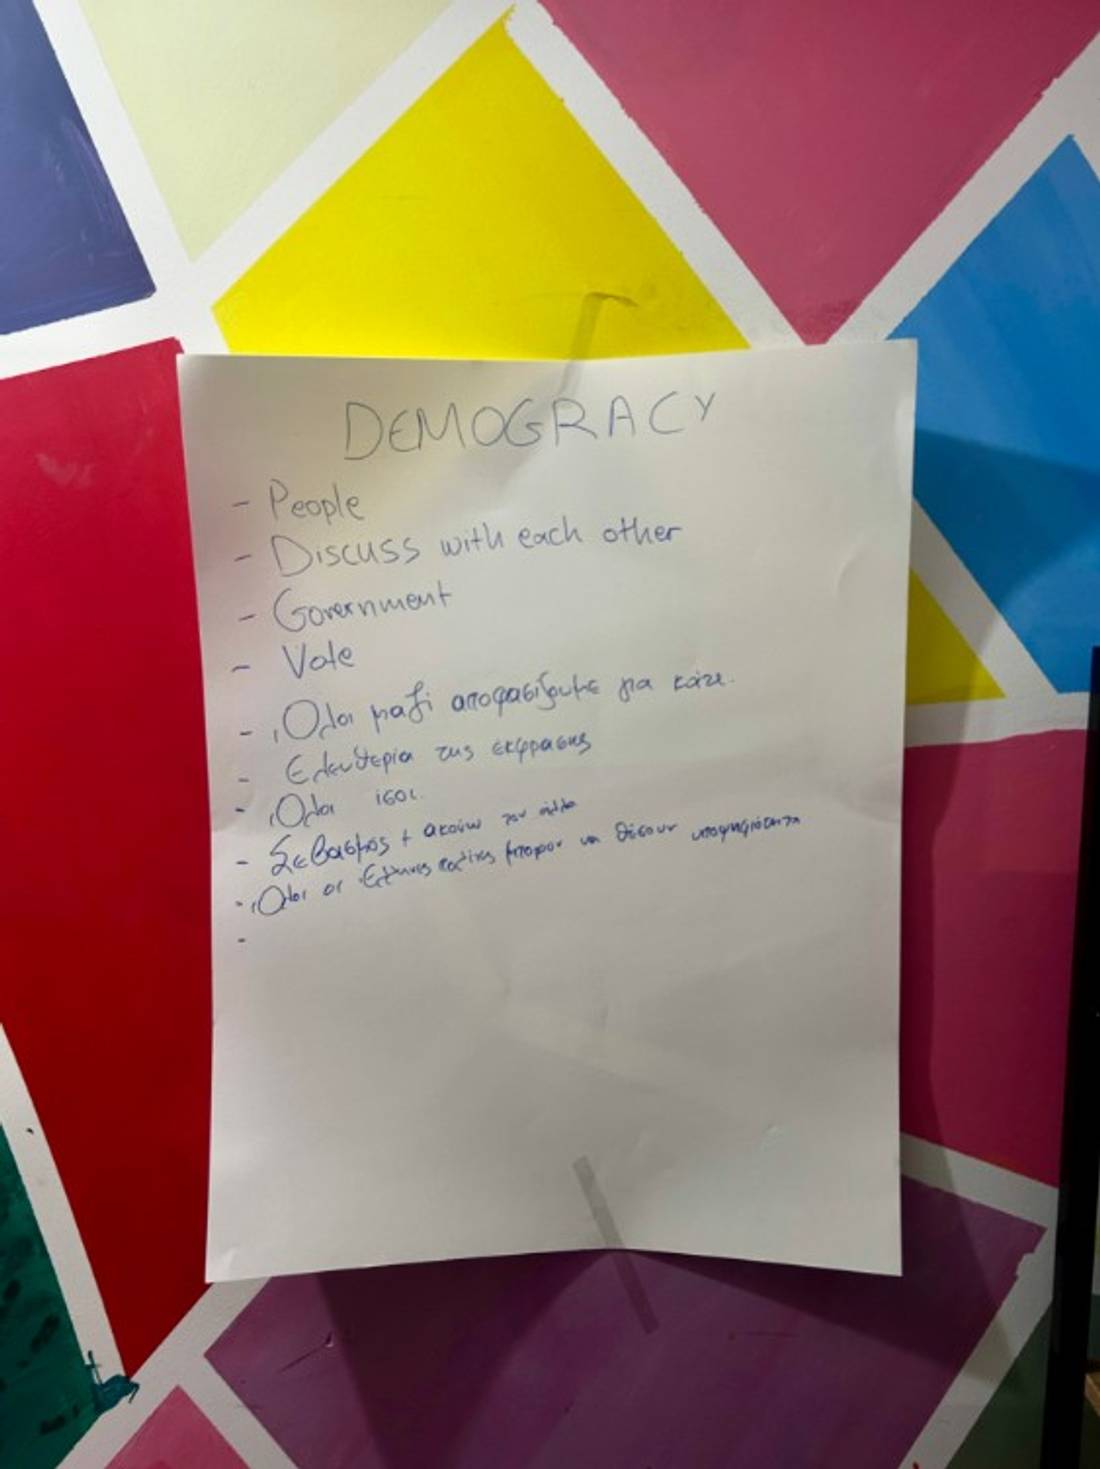 DEMOGRACY
- People
- Discuss with each other
- Government
- Vote
- Όλοι μαζί αποφασίζουμε για κάτι.
- Ελευθερία της έκφρασης
- Όλοι ίσοι.
- Σεβασμός + ακούω τον άλλο
- Όλοι οι Έλληνες πολίτες μπορούν να θέσουν υποψηφιότητα
-